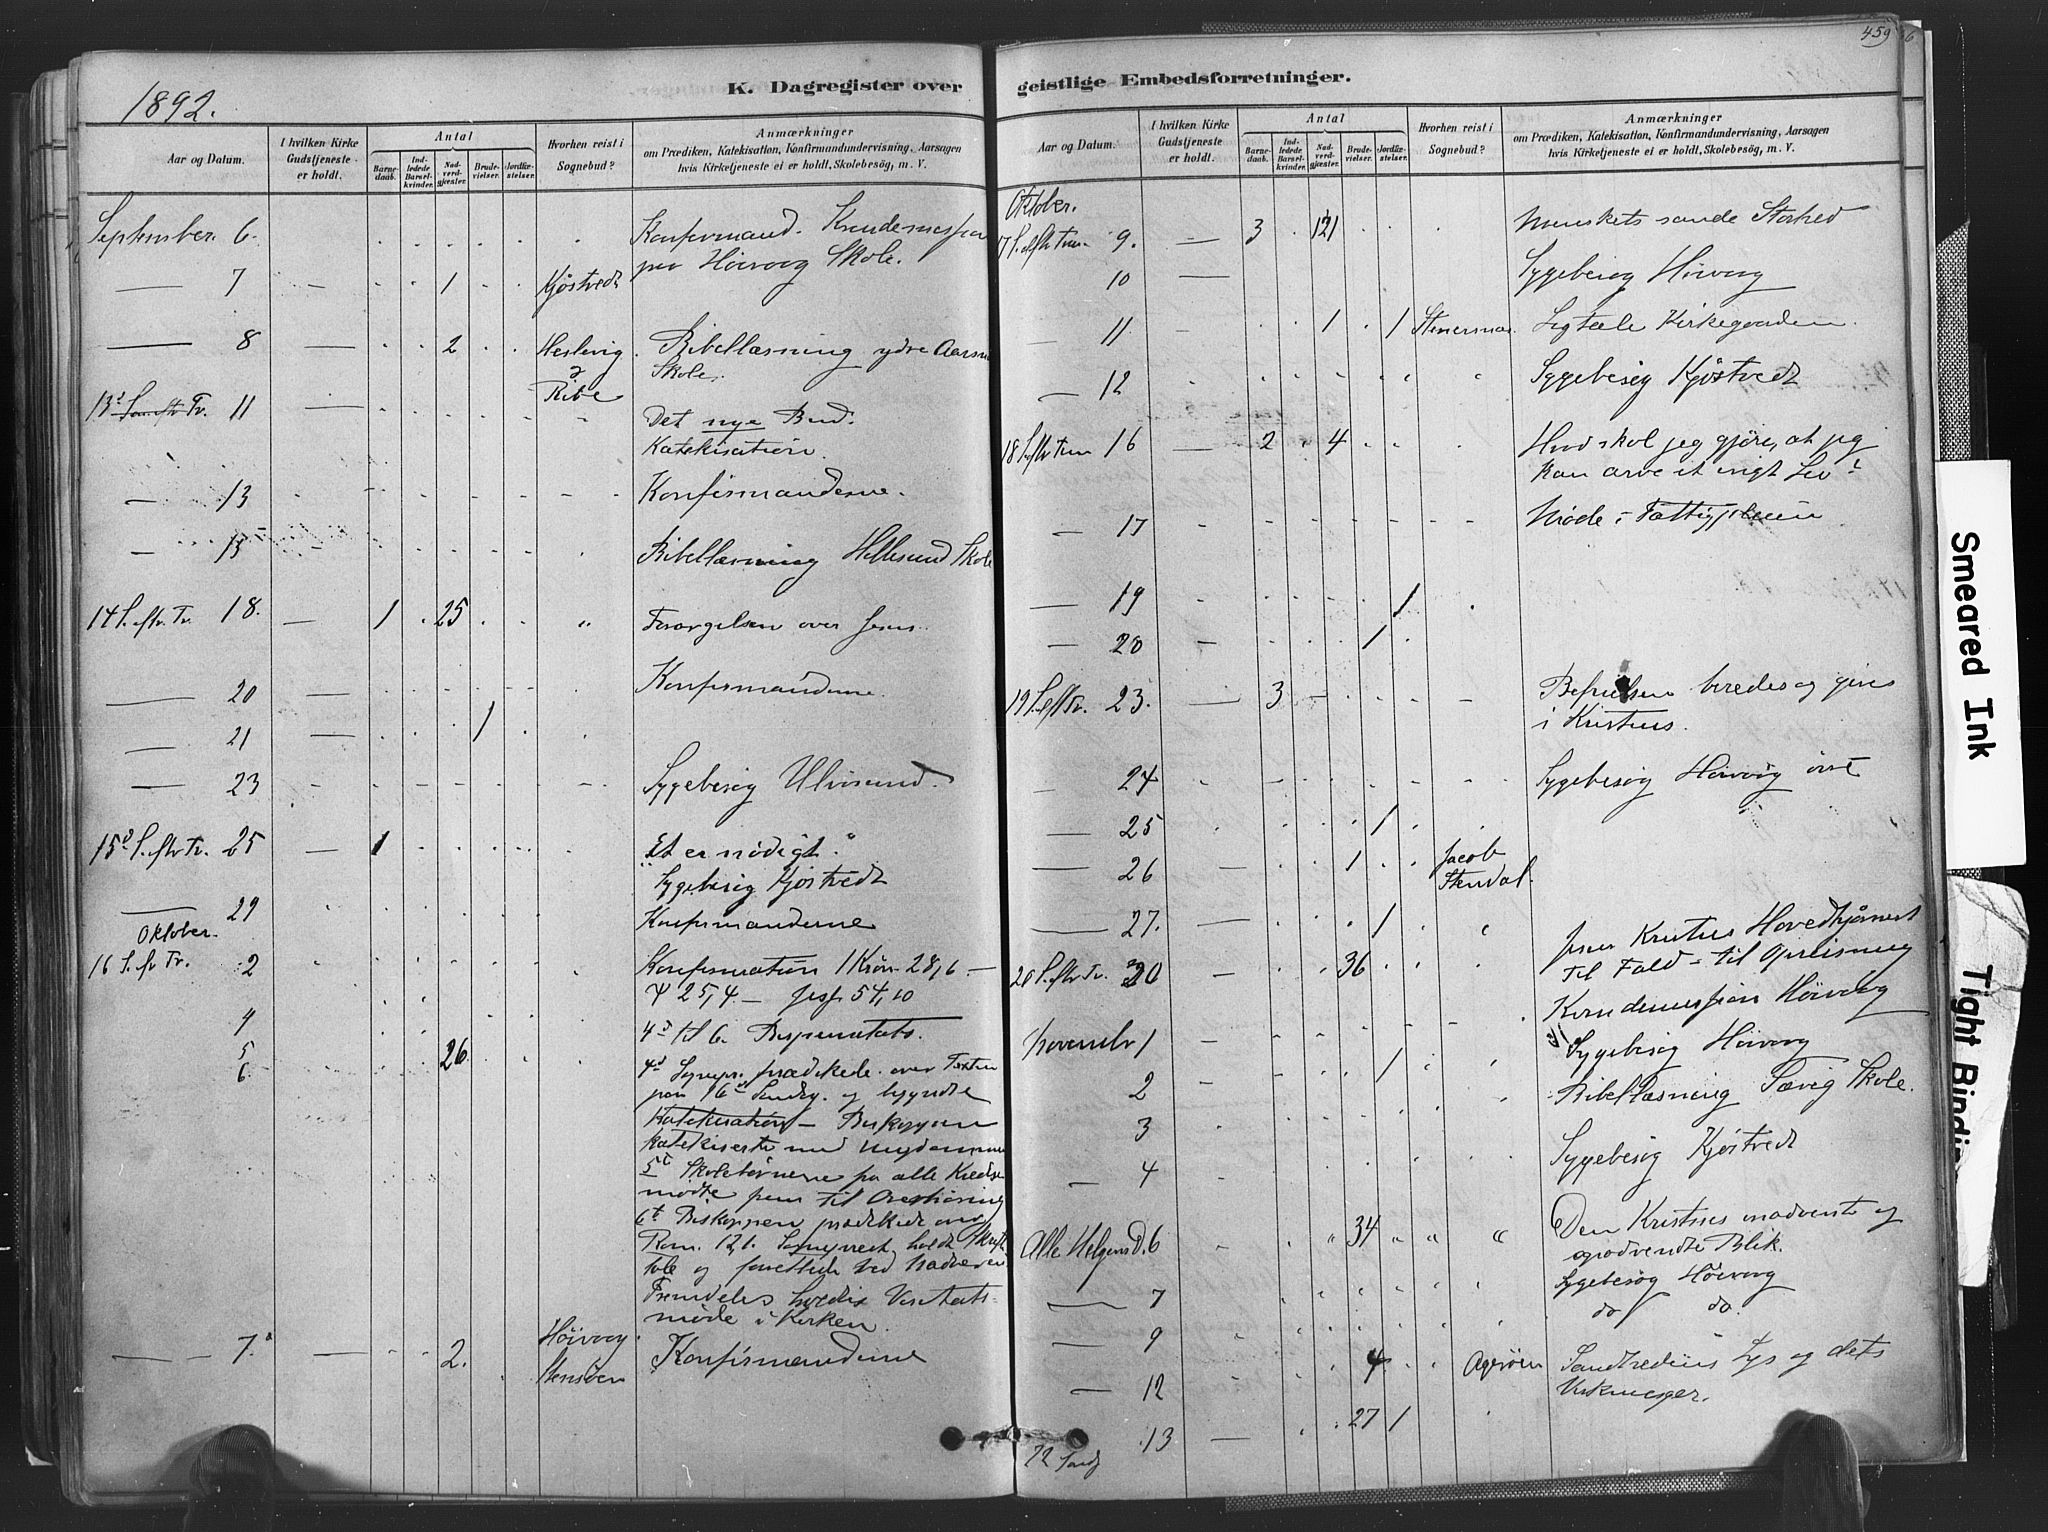 459
6
1892.
K. Dagregister over
geistlige Embedsforretninger.
Aar og Datum.
I hvilken Kirke Gudstjeneste er holdt.
Antal
Barnedaab.
Indledede Barselkvinder.
Nadverdgjæster.
Brudevielser.
Jordfæstelser.
Hvorhen reist i Sognebud?
Anmærkninger
om Prædiken, Katekisation, Konfirmandundervisning, Aarsagen
hvis Kirketjeneste ei er holdt, Skolebesög, m. V.
September. 6.
Konfirmand.
Høivaag Skole.
7 1 Kjøstvedt
8 2 Heslevig & Ribe Bibellæsning ydre Aarsnes
Skole.
Tr. 11 Det nye Bud.
Katekisation.
13 Konfirmanderne.
15 Bibellæsning Hellesund Skole
14 S. eftr. Tr. 18. 1 25 Forargelsen over Jesus.
20 Konfirmanderne.
21 1
23 Sygebesøg Ulvøsund.
15d S. eftr. Tr. 25 1 "Et er nødigt."
Sygebesøg Kjøstvedt
29 Konfirmanderne
Oktober.
16 S. e. Tr. 2 Konfirmation 1 Krøn. 28,6 —
Ψ 25,4. — Jesj. 54,10
4 4d til 6. Bispevisitats.
5 26.
6.
4d Sognepr. prædikede over Texten
paa 16d Søndag og begyndte
Katekisation — Biskoppen
katekiserte med Ungdommen
5t Skolebørnene fra alle Kredse
mødte frem til Overhøring
6t Biskoppen prædikede over
Rom. 12,1. Sognepresten holdt Skrifte
tale og forrettede ved Nadveren
Fremdeles holdtes Visitats-
møde i Kirken.
7. 2. Høivaag Stensøen Konfirmanderne
Aar og Datum.
I hvilken Kirke Gudstjeneste er holdt.
Antal
Barnedaab.
Indledede Barselkvinder.
Nadverdgjæster.
Brudevielser.
Jordfæstelser.
Hvorhen reist i Sognebud?
Anmærkninger
om Prædiken, Katekisation, Konfirmandundervisning, Aarsagen
hvis Kirketjeneste ei er holdt, Skolebesög, m. V.
Oktober.
17 S. eftr. Trin. 9. 3 121 sande Storhed
10 Sygebesøg Høivaag
11 1 1 Stenersnæs. Ligtale Kirkegaarden.
12 Sygebesøg Kjøstvedt
18 S. eftr. Trin 16 2 4 Hvad skal jeg gjøre, at jeg
kan arve et evigt Liv?
17 Møde i Fattigpleien
19 1
20 1
19 S. eft. Tr. 23. 3 Befrielsen beredes og gives
i Kristus.
24 Sygebesøg Høivaag
25 1
26 1 Jacob Stendal.
27. 1
20 S. eftr. Tr. 30 36 Kristus Hovedhjørnest.
til Fald — til Opreisning
November 1 Høivaag
Sygebesøg Høivaag
2 1 Bibellæsning Sævig Skole.
3
4 Sygebesøg Kjøstvedt
Alle Helgens D. 6 34 Den Kristnes indvendte og
opadvendte Blik.
7 Sygebesøg Høivaag
9 do do.
12 4 Agerøen Sandhedens Lys og dets
Virkninger.
13 27 1
22 Sønd
Smeared Ink
Tight Bindin